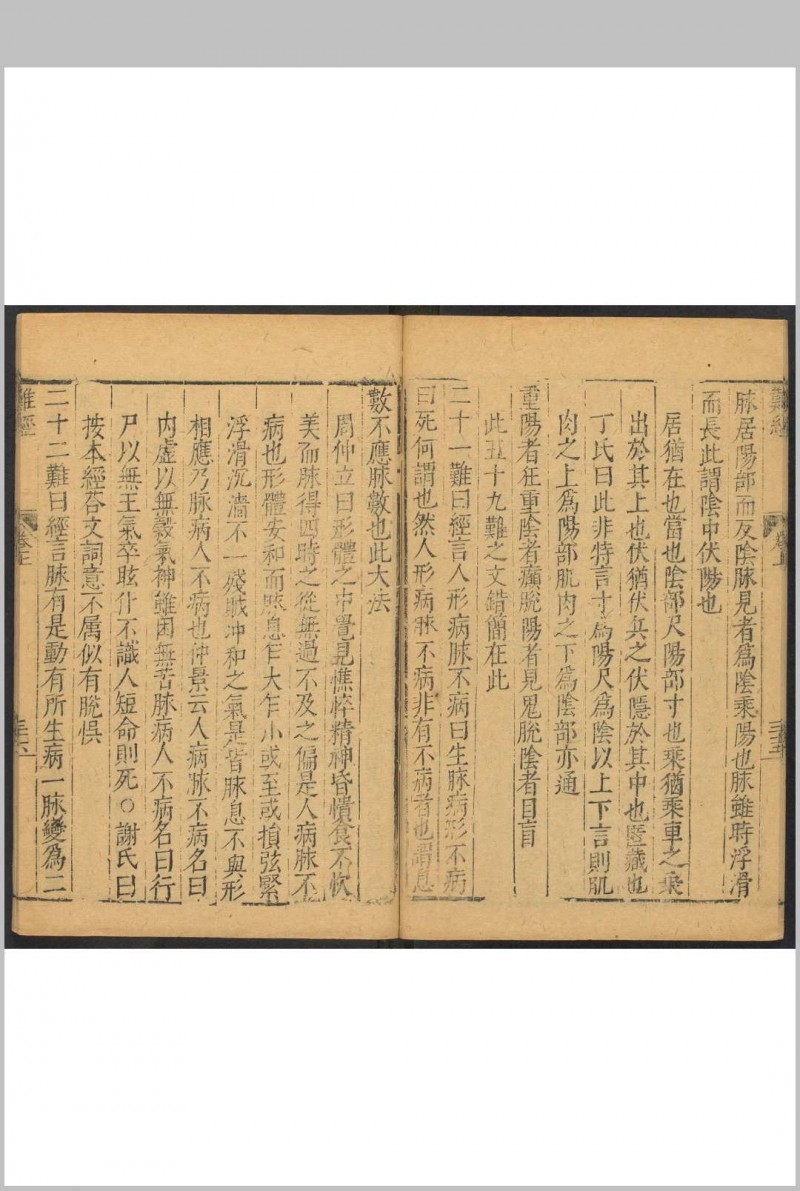 難經
卷上
三十五
脉居陽部而反陰脉見者爲陰乘陽也脉雖時浮滑
而長此謂陰中伏陽也
居猶在也當也陰部尺陽部寸也乘猶乘車之乘
出於其上也伏猶伏兵之伏隱於其中也匿藏也
丁氏曰此非特言寸爲陽尺爲陰以上下言則肌
肉之上爲陽部肌肉之下爲陰部亦通
重陽者狂重陰者癲脫陽者見鬼脫陰者目盲
此五十九難之文錯簡在此
二十一難曰經言人形病脉不病曰生脉病形不病
曰死何謂也然人形病脉不病非有不病者也謂息
數不應脉數也此大法
周仲立曰形體之中覺見憔悴精神昏憒食不忺
美而脉得四時之從無過不及之偏是人病脉不
病也形體安和而脉息乍大乍小或至或損弦緊
浮滑沉濇不一殘賊冲和之氣是皆脉息不與形
相應乃脉病人不病也仲景云人病脉不病名曰
内虛以無穀氣神雖困無苦脉病人不病名曰行
尸以無王氣卒眩仆不識人短命則死○謝氏曰
按本經荅文詞意不属似有脫悞
二十二難曰經言脉有是動有所生病一脉變爲二
難經
卷上
三十六